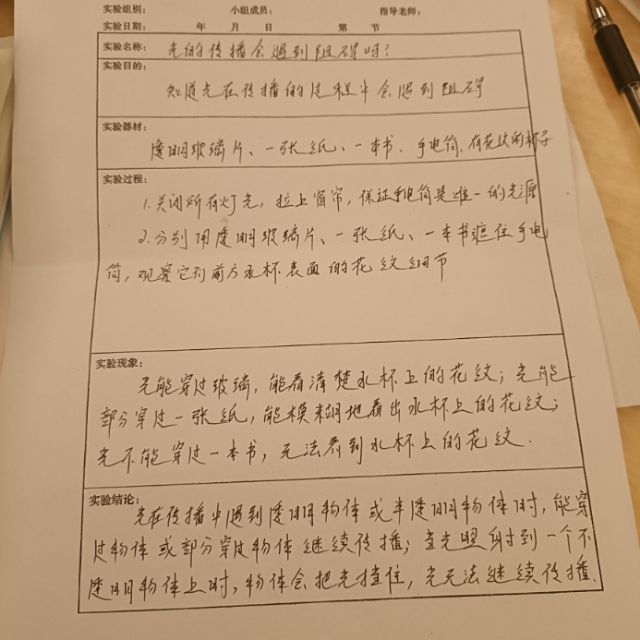 实验组别： 小组成员： 指导老师：
实验日期： 年 月 日 第 节
实验名称： 光的传播会遇到阻碍吗？
实验目的：
知道光在传播的过程中会遇到阻碍
实验器材：
透明玻璃片、一张纸、一本书、手电筒、有花纹的杯子
实验过程：
1.关闭所有灯光，拉上窗帘，保证手电筒是唯一的光源
2.分别用透明玻璃片、一张纸、一本书遮住手电
筒，观察它到前方水杯表面的花纹细节
实验现象：
光能穿过玻璃，能看清楚水杯上的花纹；光能
部分穿过一张纸，能模糊地看出水杯上的花纹；
光不能穿过一本书，无法看到水杯上的花纹.
实验结论：
光在传播中遇到透明物体或半透明物体时，能穿
过物体或部分穿过物体继续传播；当光照射到一个不
透明物体上时，物体会把光挡住，光无法继续传播.